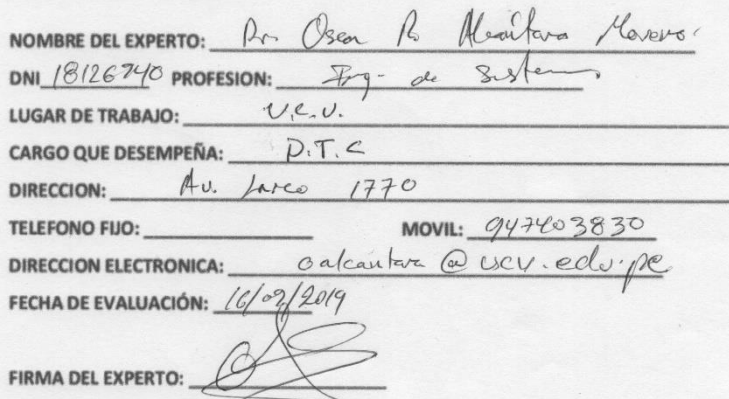 NOMBRE DEL EXPERTO: Dr. Oscar R. Alcántara Moreno
DNI 18126740 PROFESION: Ing. de Sistemas
LUGAR DE TRABAJO: U.C.V.
CARGO QUE DESEMPEÑA: D.T.C
DIRECCION: Av. Larco 1770
TELEFONO FIJO: MOVIL: 947403830
DIRECCION ELECTRONICA: oalcantara@ucv.edu.pe
FECHA DE EVALUACIÓN: 16/09/2019
FIRMA DEL EXPERTO: